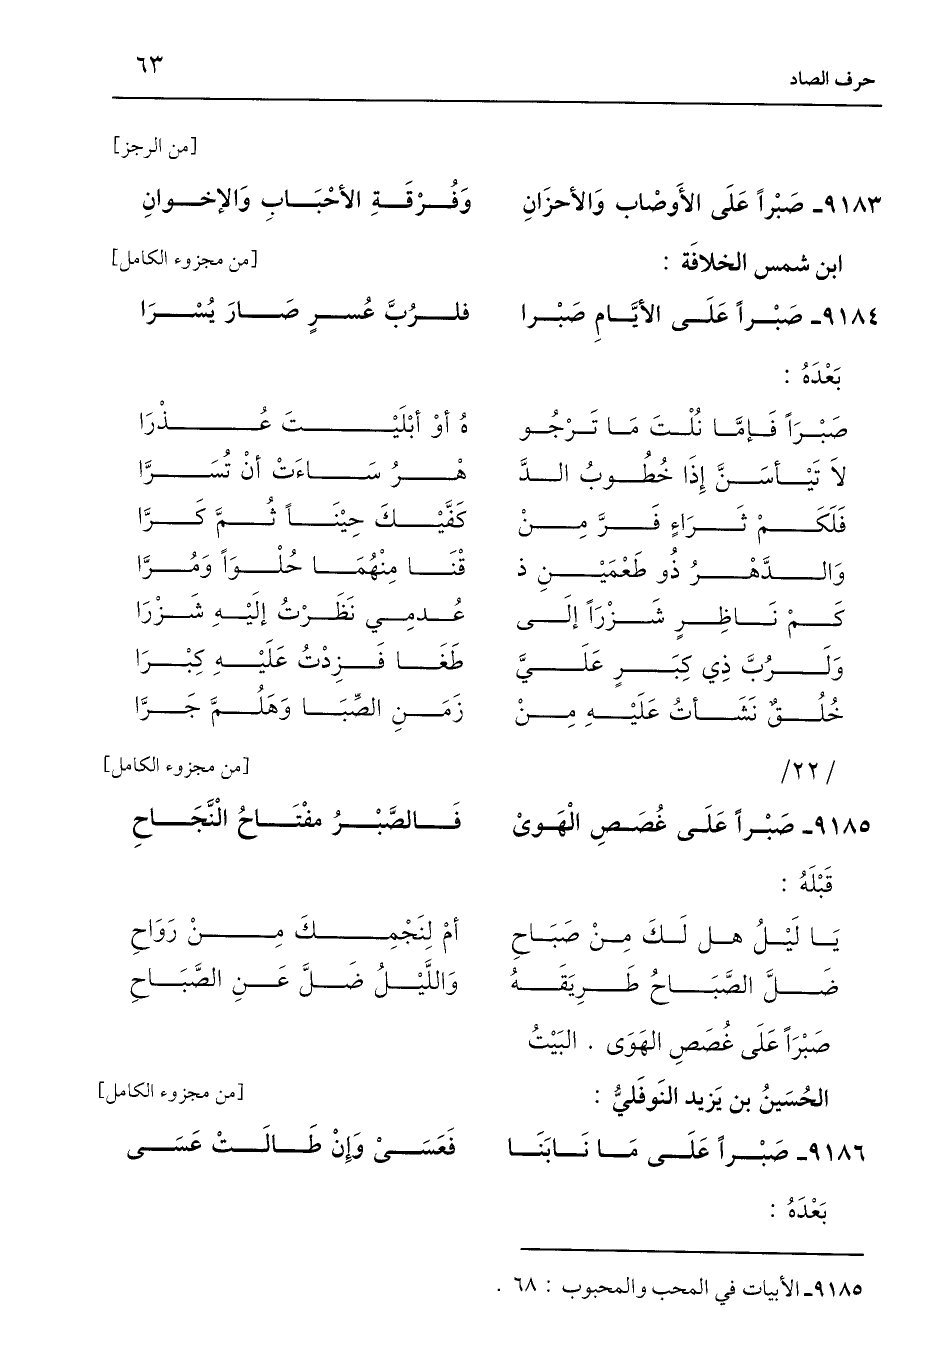 حرف الصاد ٦٣
[من الرجز]
٩١٨٣ـ صَبْراً عَلَى الأَوصْابِ وَالأحزَانِ وَفُرْقَةِ الأحْبَابِ وَالإخوانِ
ابن شمس الخلافَة : [من مجزوء الكامل]
٩١٨٤ـ صَبْراً عَلَى الأيَّامِ صَبْرا فلرُبَّ عُسرٍ صَارَ يُسْرَا
بَعْدَهُ :
صَبْرَاً فَإمَّا نُلْتَ مَا تَرْجُو هُ أوْ أبْلَيْتَ عُذْرَا
لاَ تَيْأسَنَّ إذَا خُطُوبُ الدَّ هْرُ سَاءَتْ أنْ تُسَرَّا
فَلَكَمْ ثَرَاءٍ فَرَّ مِنْ كَفَّيْكَ حِيْنَاً ثُمَّ كَرَّا
وَالدَّهْرُ ذُو طَعْمَيْنِ ذ قْنَا مِنْهُمَا حُلْوَاً وَمُرَّا
كَمْ نَاظِرٍ شَزْرَاً إلَى عُدمِي نَظَرْتُ إلَيْهِ شَزْرَا
وَلَرُبَّ ذِي كِبَرٍ عَلَيَّ طَغَا فَزِدْتُ عَلَيْهِ كِبْرَا
خُلُقٌ نَشَأتُ عَلَيْهِ مِنْ زَمَنِ الصِّبَا وَهَلُمَّ جَرَّا
/٢٢/ [من مجزوء الكامل]
٩١٨٥ـ صَبْراً عَلَى غُصَصِ الْهَوىْ فَالصَّبْرُ مفْتَاحُ الْنَّجَاحِ
قَبْلَهُ :
يَا لَيْلُ هل لَكَ مِنْ صَبَاحِ أمْ لِنَجْمِكَ مِنْ رَوَاحِ
ضَلَّ الصَّبَاحُ طَرِيَقَهُ وَاللَّيْلُ ضَلَّ عَنِ الصَّبَاحِ
صَبْرَاً عَلَى غُصَصِ الهَوَى . البَيْتُ
الحُسَينُ بن يَزيد النَوفَليُّ : [من مجزوء الكامل]
٩١٨٦ـ صَبْراً عَلَى مَا نَابَنَا فَعَسَىْ وَإنْ طَالَتْ عَسَى
بَعْدَهُ :
٩١٨٥ـ الأبيات في المحب والمحبوب : ٦٨ .